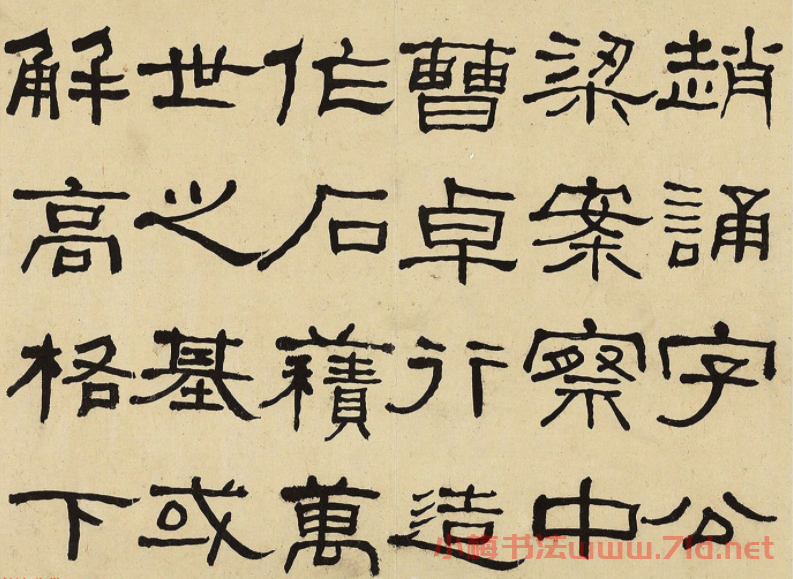 趙誦字公
梁案察中
曹卓行造
作石蕱萬
世之基或
解高格下
小梅书法www.7ld.net